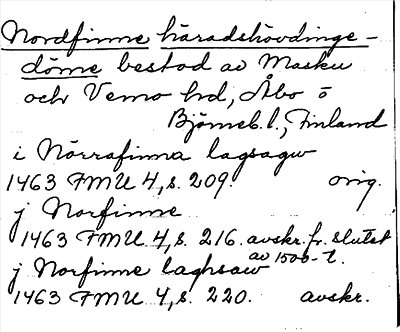 Nordfinne häradshövdinge-
döme bestod av Masku
och Vemo hd, Åbo o
Björneb. l., Finland
i Nörrafinna lagsagw
1463 FMU 4, s. 209. orig.
j Norfinne
1463 FMU 4, s. 216. avskr. fr. slutet
av 1500-t.
j Norfinne laghsaw
1463 FMU 4, s. 220. avskr.